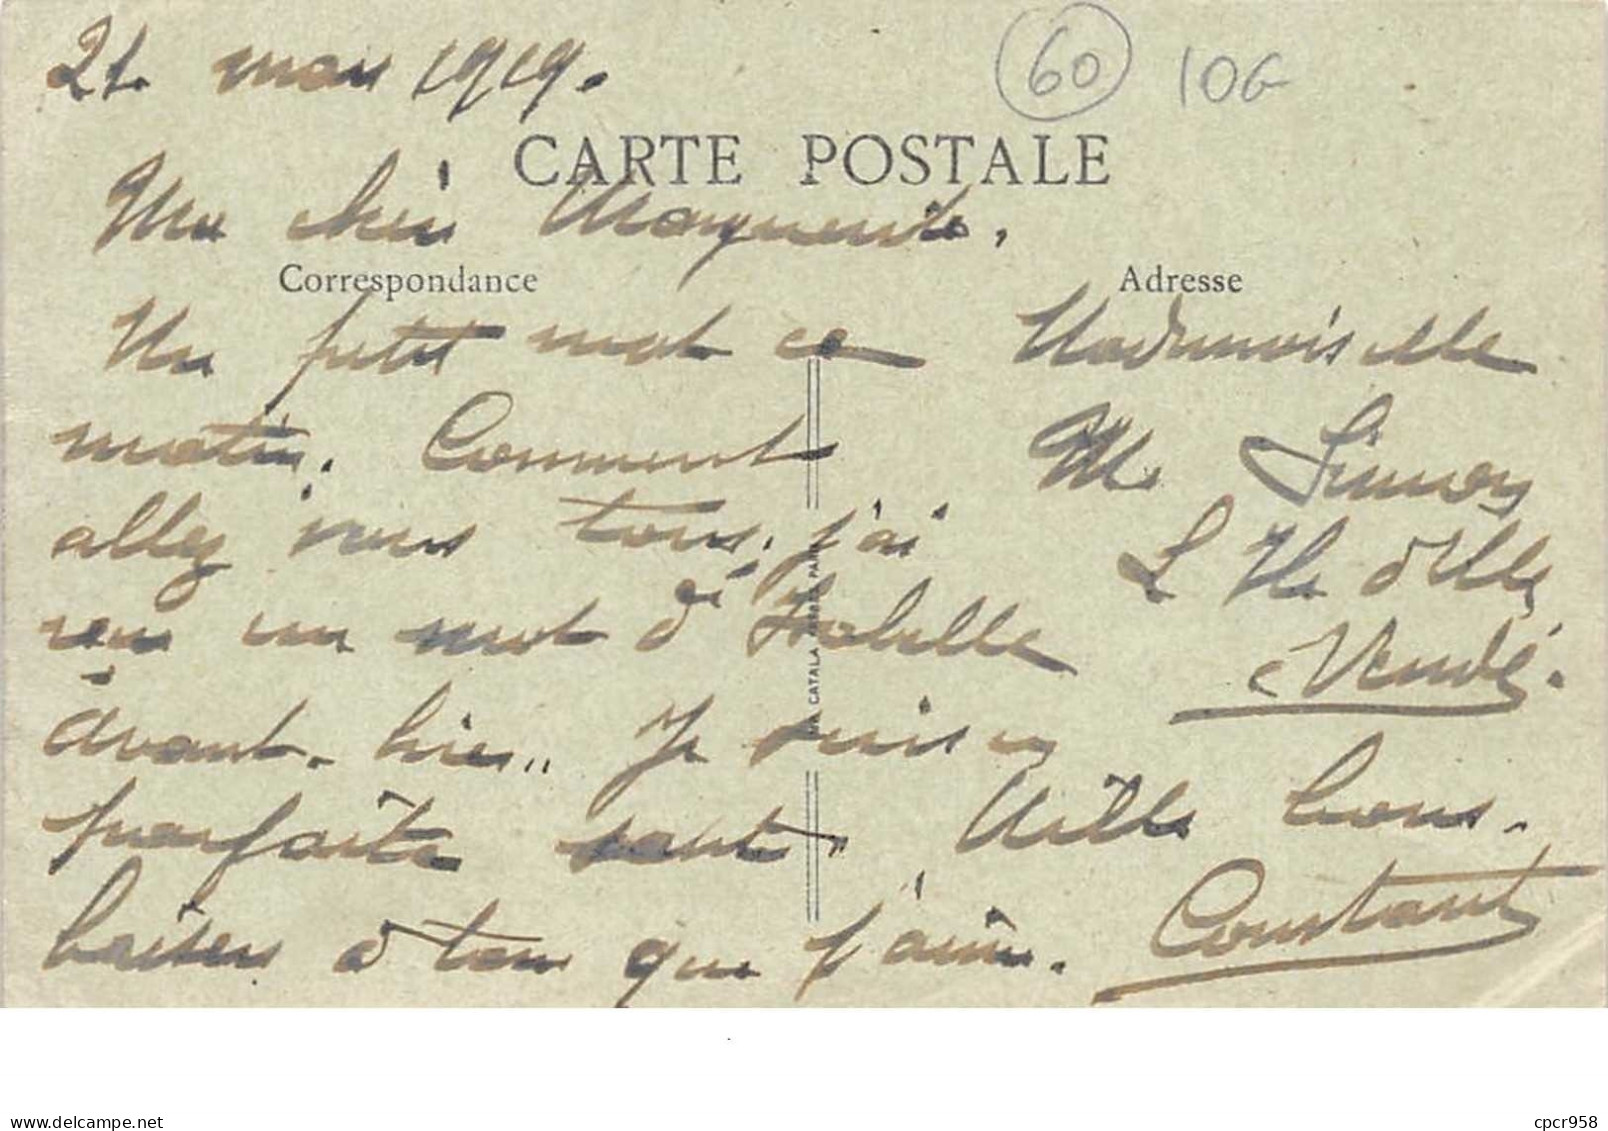 21 mai 1919.
60
10G
CARTE POSTALE
Ma chère Marguerite,
Correspondance
Un petit mot ce
matin. Comment
allez vous tous, j'ai
reçu un mot d'Isabelle
avant-hier.. Je suis en
parfaite santé.
baisers à tous que j'aime.
Mille bons
Constant
Adresse
Mademoiselle
M. Simon
L'Ile d'Elle
Vendée.
CATALA PARIS
delcampe.net
cpcr958